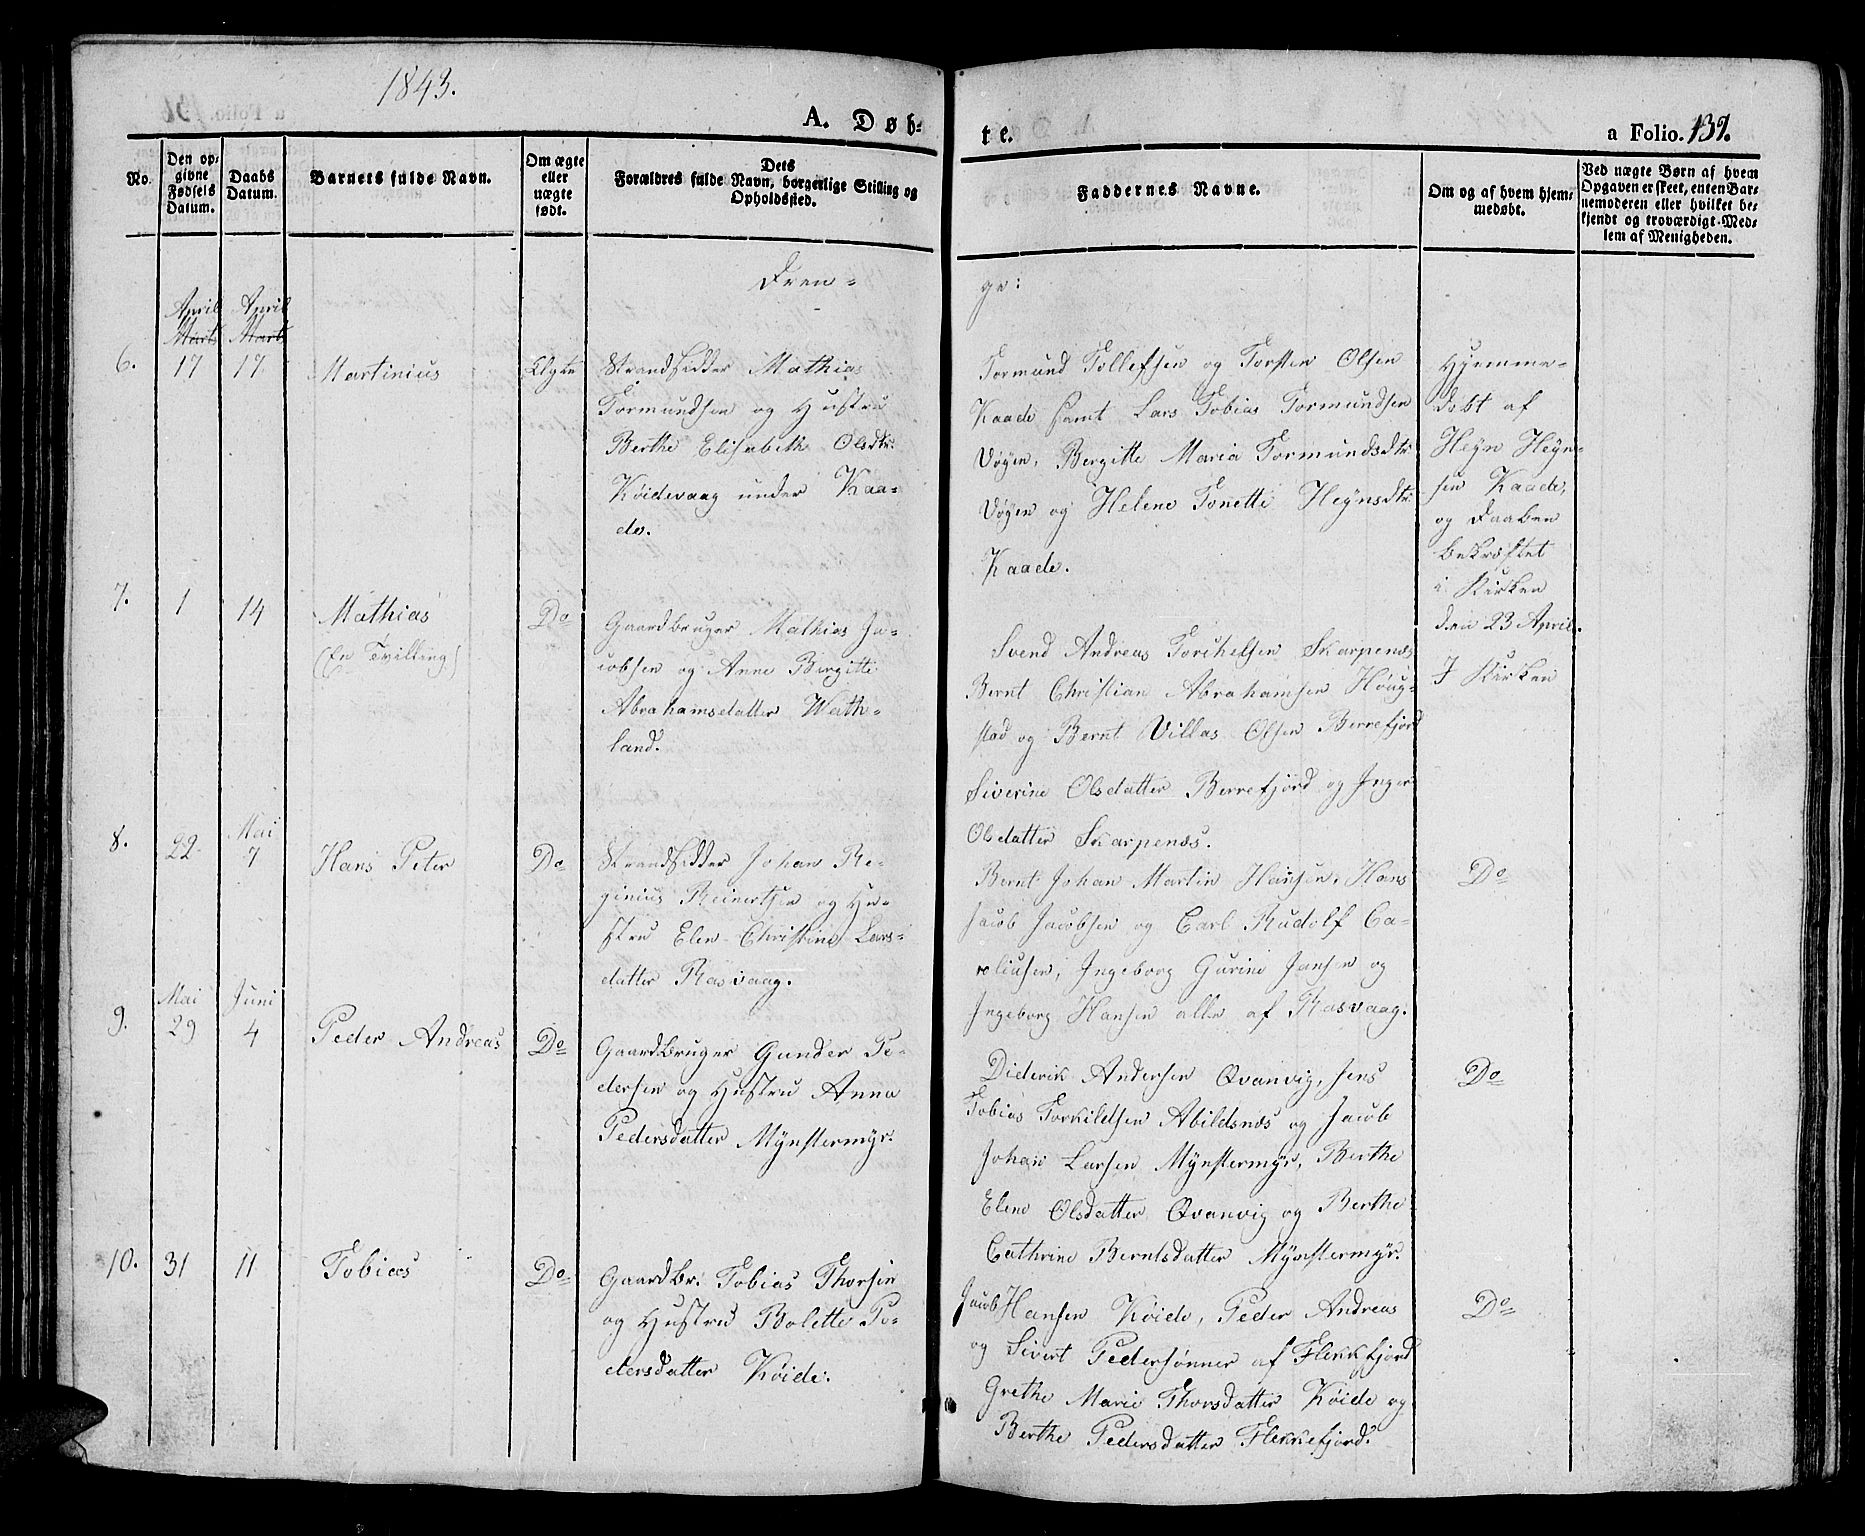 1843.
A. Døb-
te.
a Folio. 139.
No.
Den op-
givne
Fødsels
Datum.
Daabs
Datum.
Barnets fulde Navn.
Om ægte
eller
uægte
født.
Dets
Forældres fulde Navn, borgerlige Stilling og
Opholdssted.
Faddernes Navne.
Om og af hvem hjem-
medøbt.
Ved uægte Børn af hvem
Opgaven er skeet, enten Bar-
nemoderen eller hvilket be-
kjendt og troværdigt Med-
lem af Menigheden.
Dren-
ge:
April April
Marts Marts
6. 17 17 Martinius Ægte
Strandsidder Mathias
Tormundsen og Hustru
Berthe Elisabeth Olsdtr.
Köidevaag under Kaa-
de.
Tormund Tollefsen og Torsten Olsen
Kaade samt Lars Tobias Tormundsen
Vögen, Bergitte Maria Tormundsdtr
Vögen og Helene Tonette Heynsdtr
Kaade.
Hjemme-
döbt af
Heyn Heyn-
sen Kaade,
og Daaben
bekræftet
i Kirken
den 23 April.
7. 1 14 Mathias Do
(En Tvilling)
Gaardbruger Mathias Ja-
cobsen og Anne Bergitte
Abrahamsdatter Wath-
land.
Svend Andreas Torkelsen Skarpenæs
Bernt Christian Abrahamsen Höug-
stad og Bernt Villas Olsen Berrefjord
Siverine Olsdatter Berrefjord og Inger
Olsdatter Skarpenæs.
I Kirken
Mai
8. 22 7 Hans Peter Do
Strandsidder Johan Re-
ginius Reinertsen og Hu-
stru Elen Christine Lars-
datter Rasvaag.
Bernt Johan Martin Hansen, Hans
Jacob Jacobsen og Carl Rudolf Ca-
roliusen, Ingeborg Gurine Jansen og
Ingeborg Hansen alle af Rasvaag.
Do
Mai Juni
9. 29 4 Peder Andreas Do
Gaardbruger Gunder Pe-
dersen og Hustru Anna
Pedersdatter Mÿnstermÿr.
Diderik Andersen Qvanvig, Jens
Tobias Torkildsen Abildsnæs og Jacob
Johan Larsen Mÿnstermÿr, Berthe
Elene Olsdatter Qvanvig og Berthe
Cathrine Berntsdatter Mÿnstermÿr.
Do
10. 31 11 Tobias Do
Gaardbr. Tobias Thorsen
og Hustru Bolette Pe-
dersdatter Köide.
Jacob Hansen Köide, Peder Andreas
og Sivert Pedersønner af Flekkfjord
Grethe Marie Thorsdatter Köide og
Berthe Pedersdatter Flekkefjord.
Do